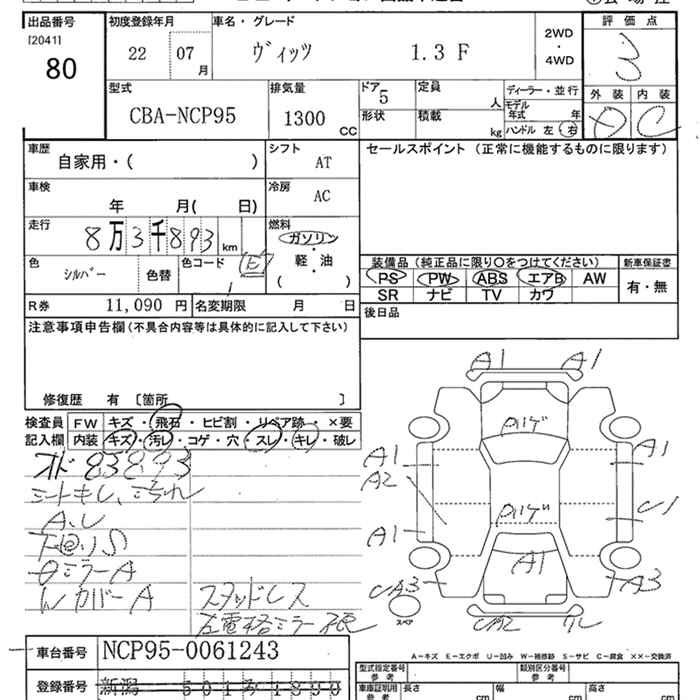 出品番号 初度登録年月 車名・グレード 評価点
[2041]
80 22 07月 ヴィッツ 1.3 F 2WD・4WD 3
型式 排気量 ドア 定員 人 ディーラー・並行 外装 内装
CBA-NCP95 1300 CC 5 形状 積載 kg モデル年式 年 D C
ハンドル 左 右
車歴 シフト セールスポイント(正常に機能するものに限ります)
自家用・( ) AT
車検 冷房
年 月( 日) AC
走行 燃料
8万3千893km ガソリン
軽・油
( )
色 シルバー 色替 色コード 1E7
装備品(純正品に限り〇をつけてください) 新車保証書
PS PW ABS エアB AW 有・無
SR ナビ TV カワ
R券 11,090 円 名変期限 月 日
後日品
注意事項申告欄(不具合内容等は具体的に記入して下さい)
修復歴 有 [箇所 ]
検査員 FW キズ・飛石・ヒビ割・リペア跡・×要
記入欄 内装 キズ・汚レ・コゲ・穴・スレ・キレ・破レ
オド 83893
シートキレ、汚れ
A、U
下回りS
ミラーA
WカバーA スタッドレス
左電格ミラー
A1 A1
A1 A1
A2
A1
A1
A3
スペア
車台番号 NCP95-0061243
登録番号 新潟 501
A-キズ E-エクボ U-凹み W-補修跡 S-サビ C-腐食 ××-交換済
型式指定番号 参考 類別区分番号 参考
車庫証明用 参考 長さ cm 幅 cm 高さ cm